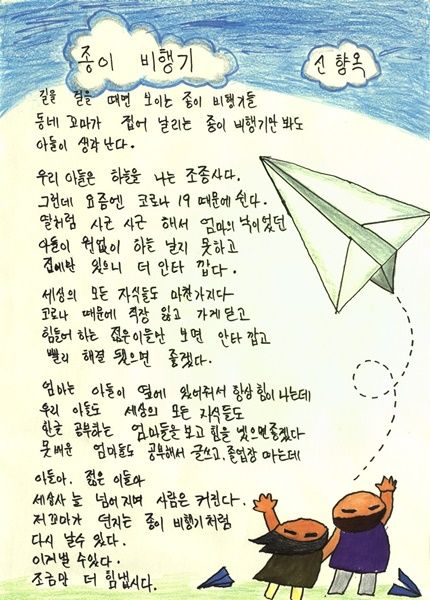 종이 비행기
신향옥
길을 걸을 때면 보이는 종이 비행기들
동네 꼬마가 접어 날리는 종이 비행기만 봐도
아들이 생각난다.
우리 아들은 하늘을 나는 조종사다.
그런데 요즘엔 코로나 19 때문에 쉰다.
딸처럼 시근 시근 해서 엄마의 낙이었던
아들이 원없이 하늘 날지 못하고
집에만 있으니 더 안타 깝다.
세상의 모든 자식들도 마찬가지다
코로나 때문에 직장 잃고 가게 닫고
힘들어 하는 젊은이들만 보면 안타 깝고
빨리 해결 됐으면 좋겠다.
엄마는 아들이 옆에 있어줘서 항상 힘이 나는데
우리 아들도 세상의 모든 자식들도
한글 공부하는 엄마들을 보고 힘을 냈으면 좋겠다
못 배운 엄마들도 공부해서 글쓰고, 졸업장 따는데
아들아. 젊은 이들아
세상사 늘 넘어지며 사람은 커진다.
저 꼬마가 던지는 종이 비행기처럼
다시 날수 있다.
이겨낼 수 있다.
조금만 더 힘냅시다.